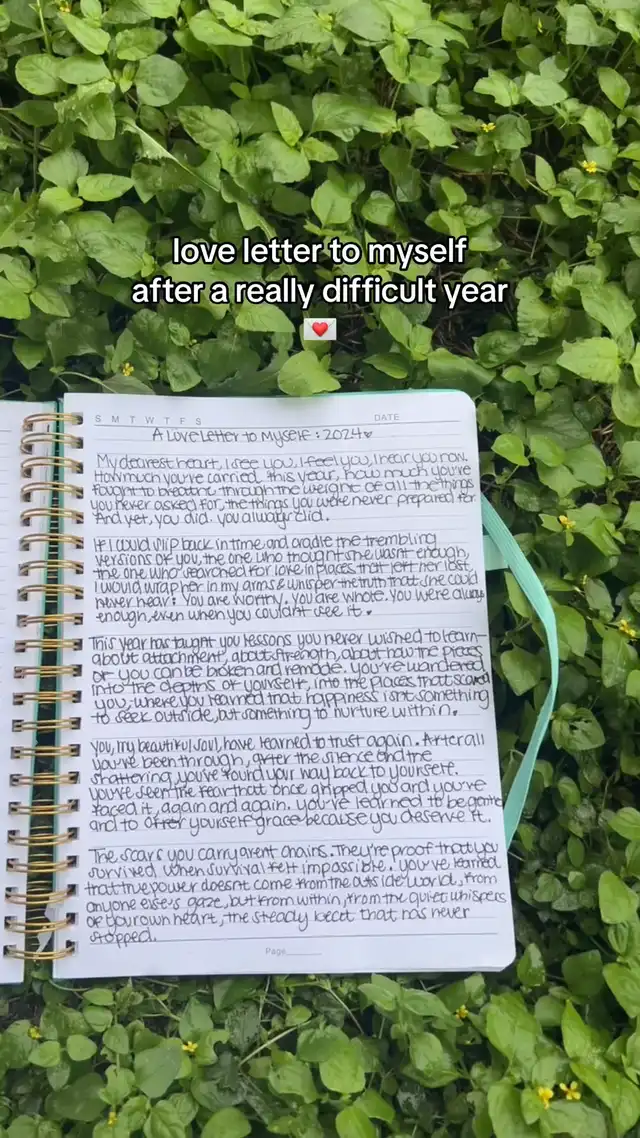 love letter to myself
after a really difficult year
💌
S M T W T F S
DATE
A Love Letter to Myself: 2024♥
My dearest heart, I see you, I feel you, I hear you now.
How much you've carried this year, how much you've
fought to breathe through the weight of all the things
you never asked for, the things you were never prepared for.
And yet, you did. you always did.
If I could slip back in time and cradle the trembling
versions of you, the one who thought she wasn't enough,
the one who searched for love in places that left her lost,
I would wrap her in my arms & whisper the truth that she could
never hear: You are worthy. You are whole. You were always
enough, even when you couldn't see it.
This year has taught you lessons you never wished to learn—
about attachment, about strength, about how the pieces
of you can be broken and remade. You've wandered
into the depths of yourself, into the places that scared
you, where you learned that happiness isn't something
to seek outside, but something to nurture within.
You, my beautiful soul, have learned to trust again. After all
you've been through, after the silence and the
shattering, you've found your way back to yourself.
You've seen the fear that once gripped you and you've
faced it, again and again. You've learned to be gentle
and to offer yourself grace because you deserve it.
The scars you carry arent chains. They're proof that you
survived when survival felt impossible. You've learned
that true power doesn't come from the outside world, from
anyone else's gaze, but from within, from the quiet whispers
of your own heart, the steady beat that has never
stopped.
Page